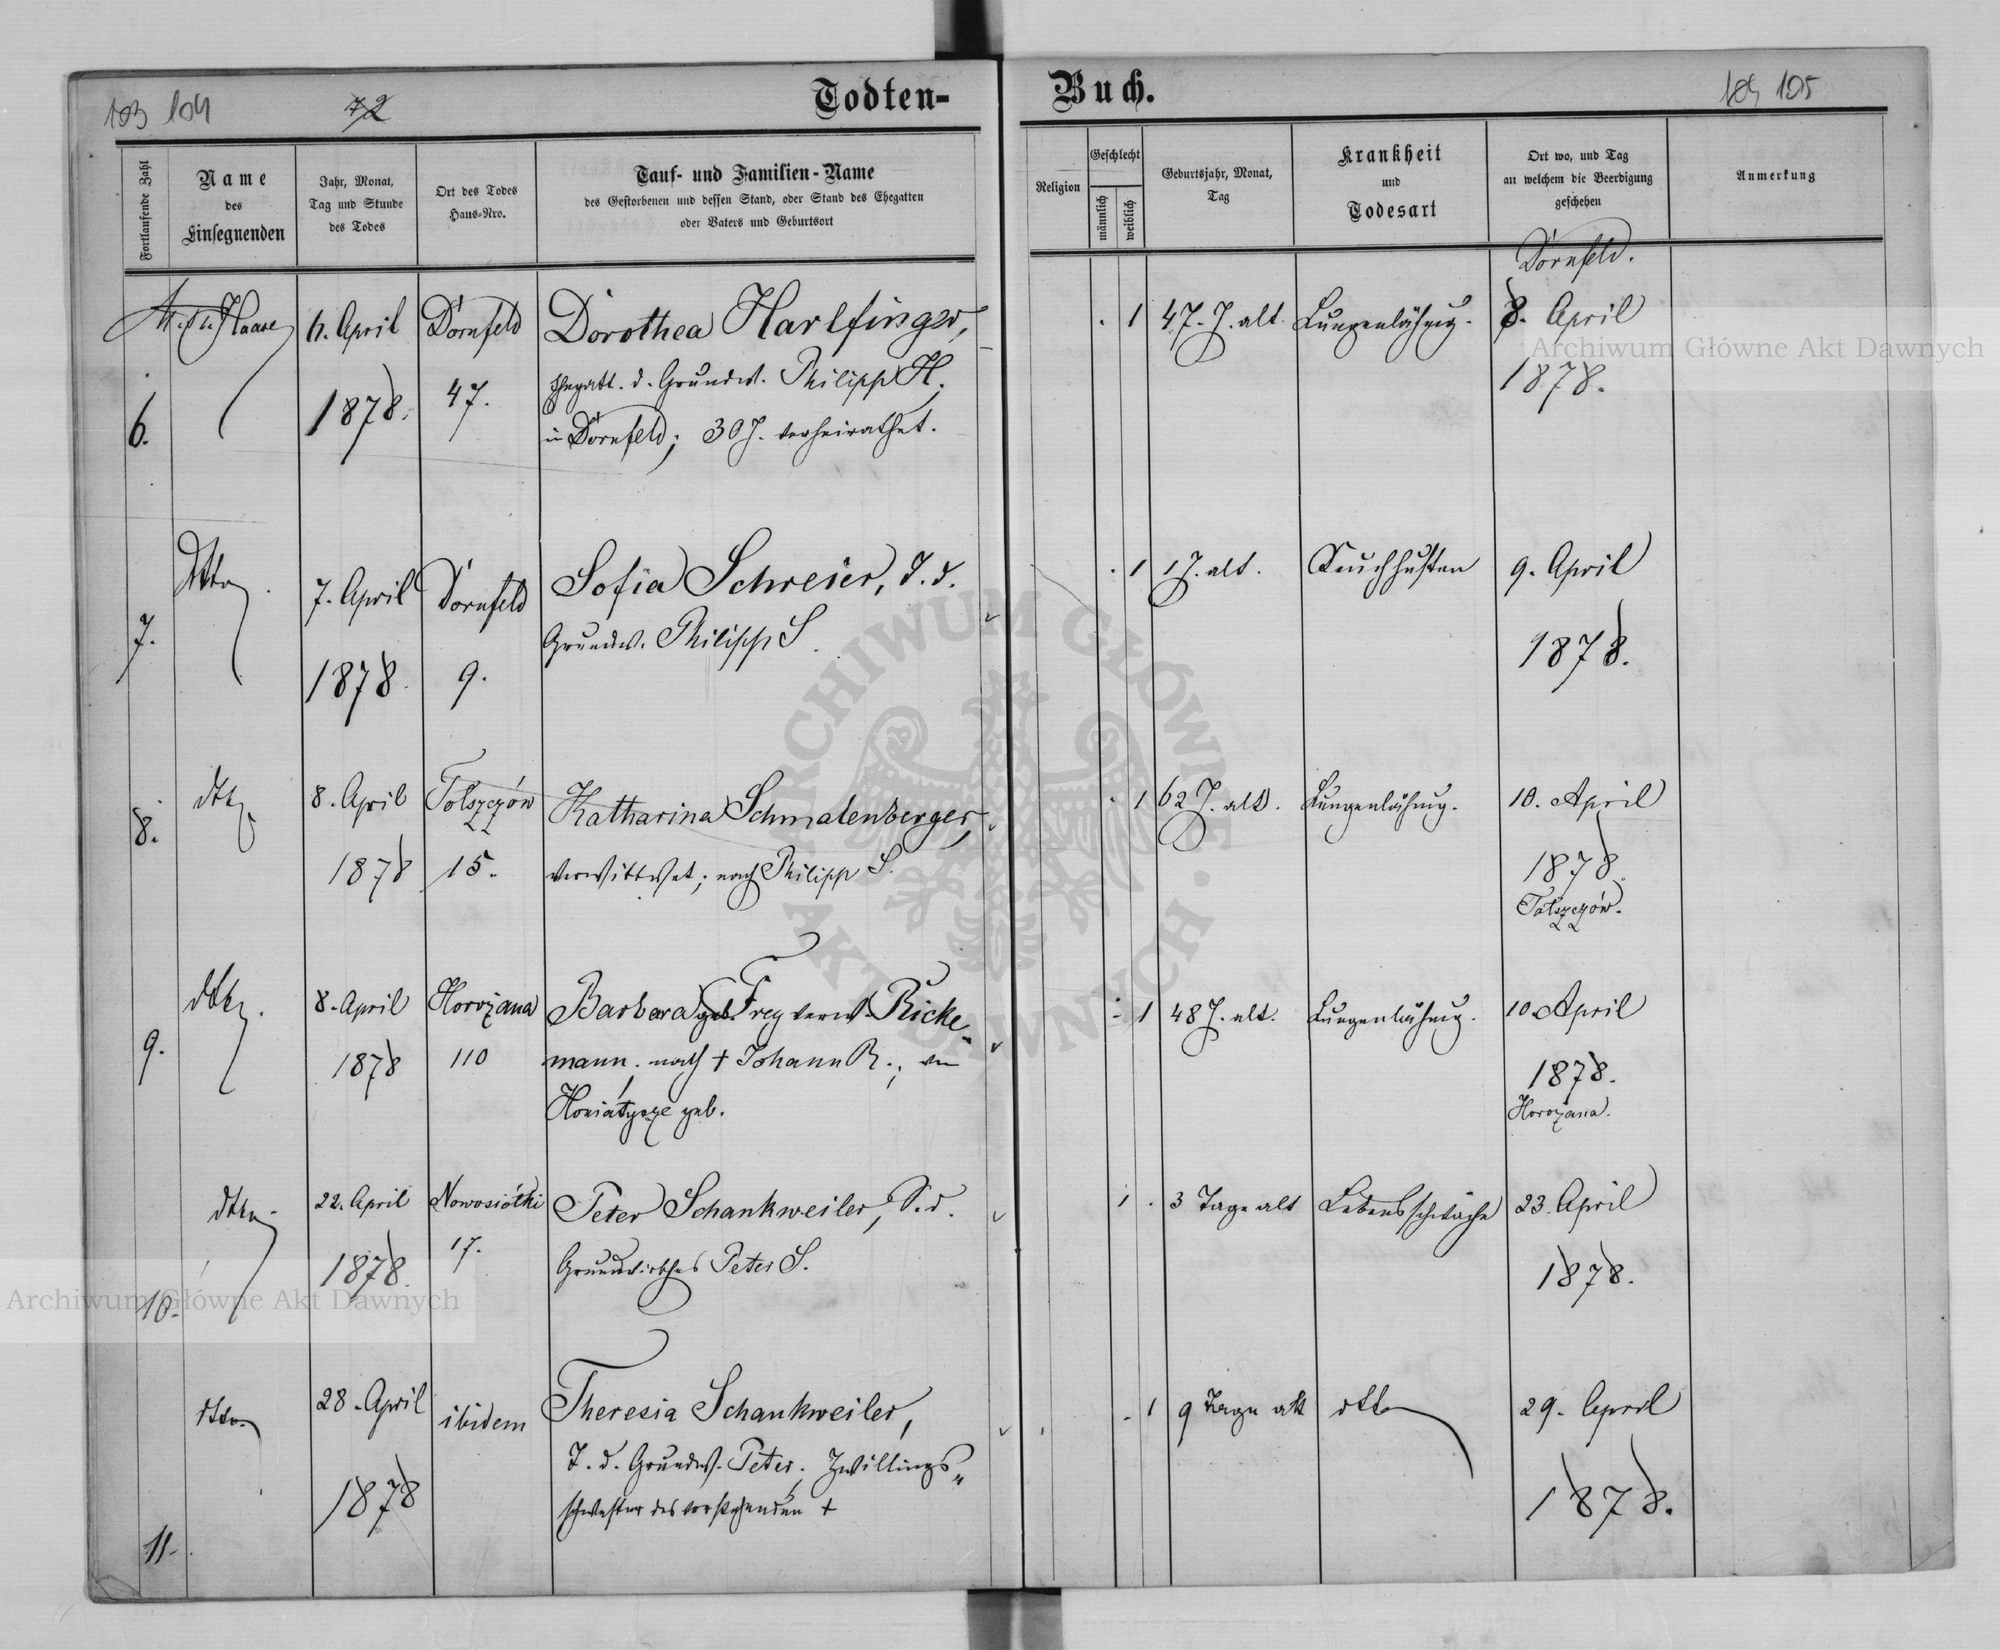 103 104
72
Todten-
Buch.
104 105
Fortlaufende Zahl
Name
des
Einsegnenden
Jahr, Monat,
Tag und Stunde
des Todes
Ort des Todes
Haus-Nro.
Tauf- und Familien-Name
des Gestorbenen und dessen Stand, oder Stand des Ehegatten
oder Vaters und Geburtsort
Religion
Geschlecht
männlich
weiblich
Geburtsjahr, Monat,
Tag
Krankheit
und
Todesart
Ort wo, und Tag
an welchem die Beerdigung
geschehen
Anmerkung
6.
Haase
April
1878.
Dornfeld
47.
Dorothea Harlfinger,
Ehegatt. d. Grundw. Philipp H.
in Dornfeld; 30 J. verheirathet.
1
47. J. alt.
Lungenlähmg.
Dornfeld.
8. April
1878.
7.
dtto
7. April
1878.
Dornfeld
9.
Sofia Schreier, T. d.
Grundw. Philipp S.
1
1 J. alt.
Keuchhusten
9. April
1878.
8.
dtto
8. April
1878
Tolszczów
15.
Katharina Schmalenberger,
verwittwet; nach Philipp S.
1
62 J. alt.
Lungenlähmg.
10. April
1878.
Tolszczów.
9.
dtto.
8. April
1878
Horozana
110
Barbara geb. Frey verw. Ricke-
mann, nach + Johann R.; in
Honiatycze geb.
1
48 J. alt.
Lungenlähmg.
10. April
1878.
Horozana.
10.
dtto
22. April
1878.
Nowosiółki
17.
Peter Schankweiler, S. d.
Grundwirthes Peter S.
1
3 Tage alt
Lebensschwäche
23. April
1878.
11.
dtto
28. April
1878
ibidem
Theresia Schankweiler,
T. d. Grundw. Peter; Zwillings-
schwester des vorstehenden +
1
9 Tage alt
dtto
29. April
1878.
Archiwum Główne Akt Dawnych
Archiwum Główne Akt Dawnych
ARCHIWUM GŁÓWNE AKT DAWNYCH